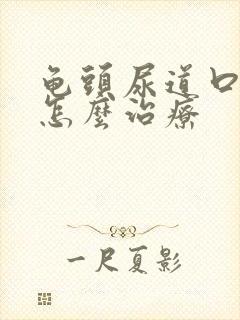 龟頭尿道口
怎麼治療
一尺夏影